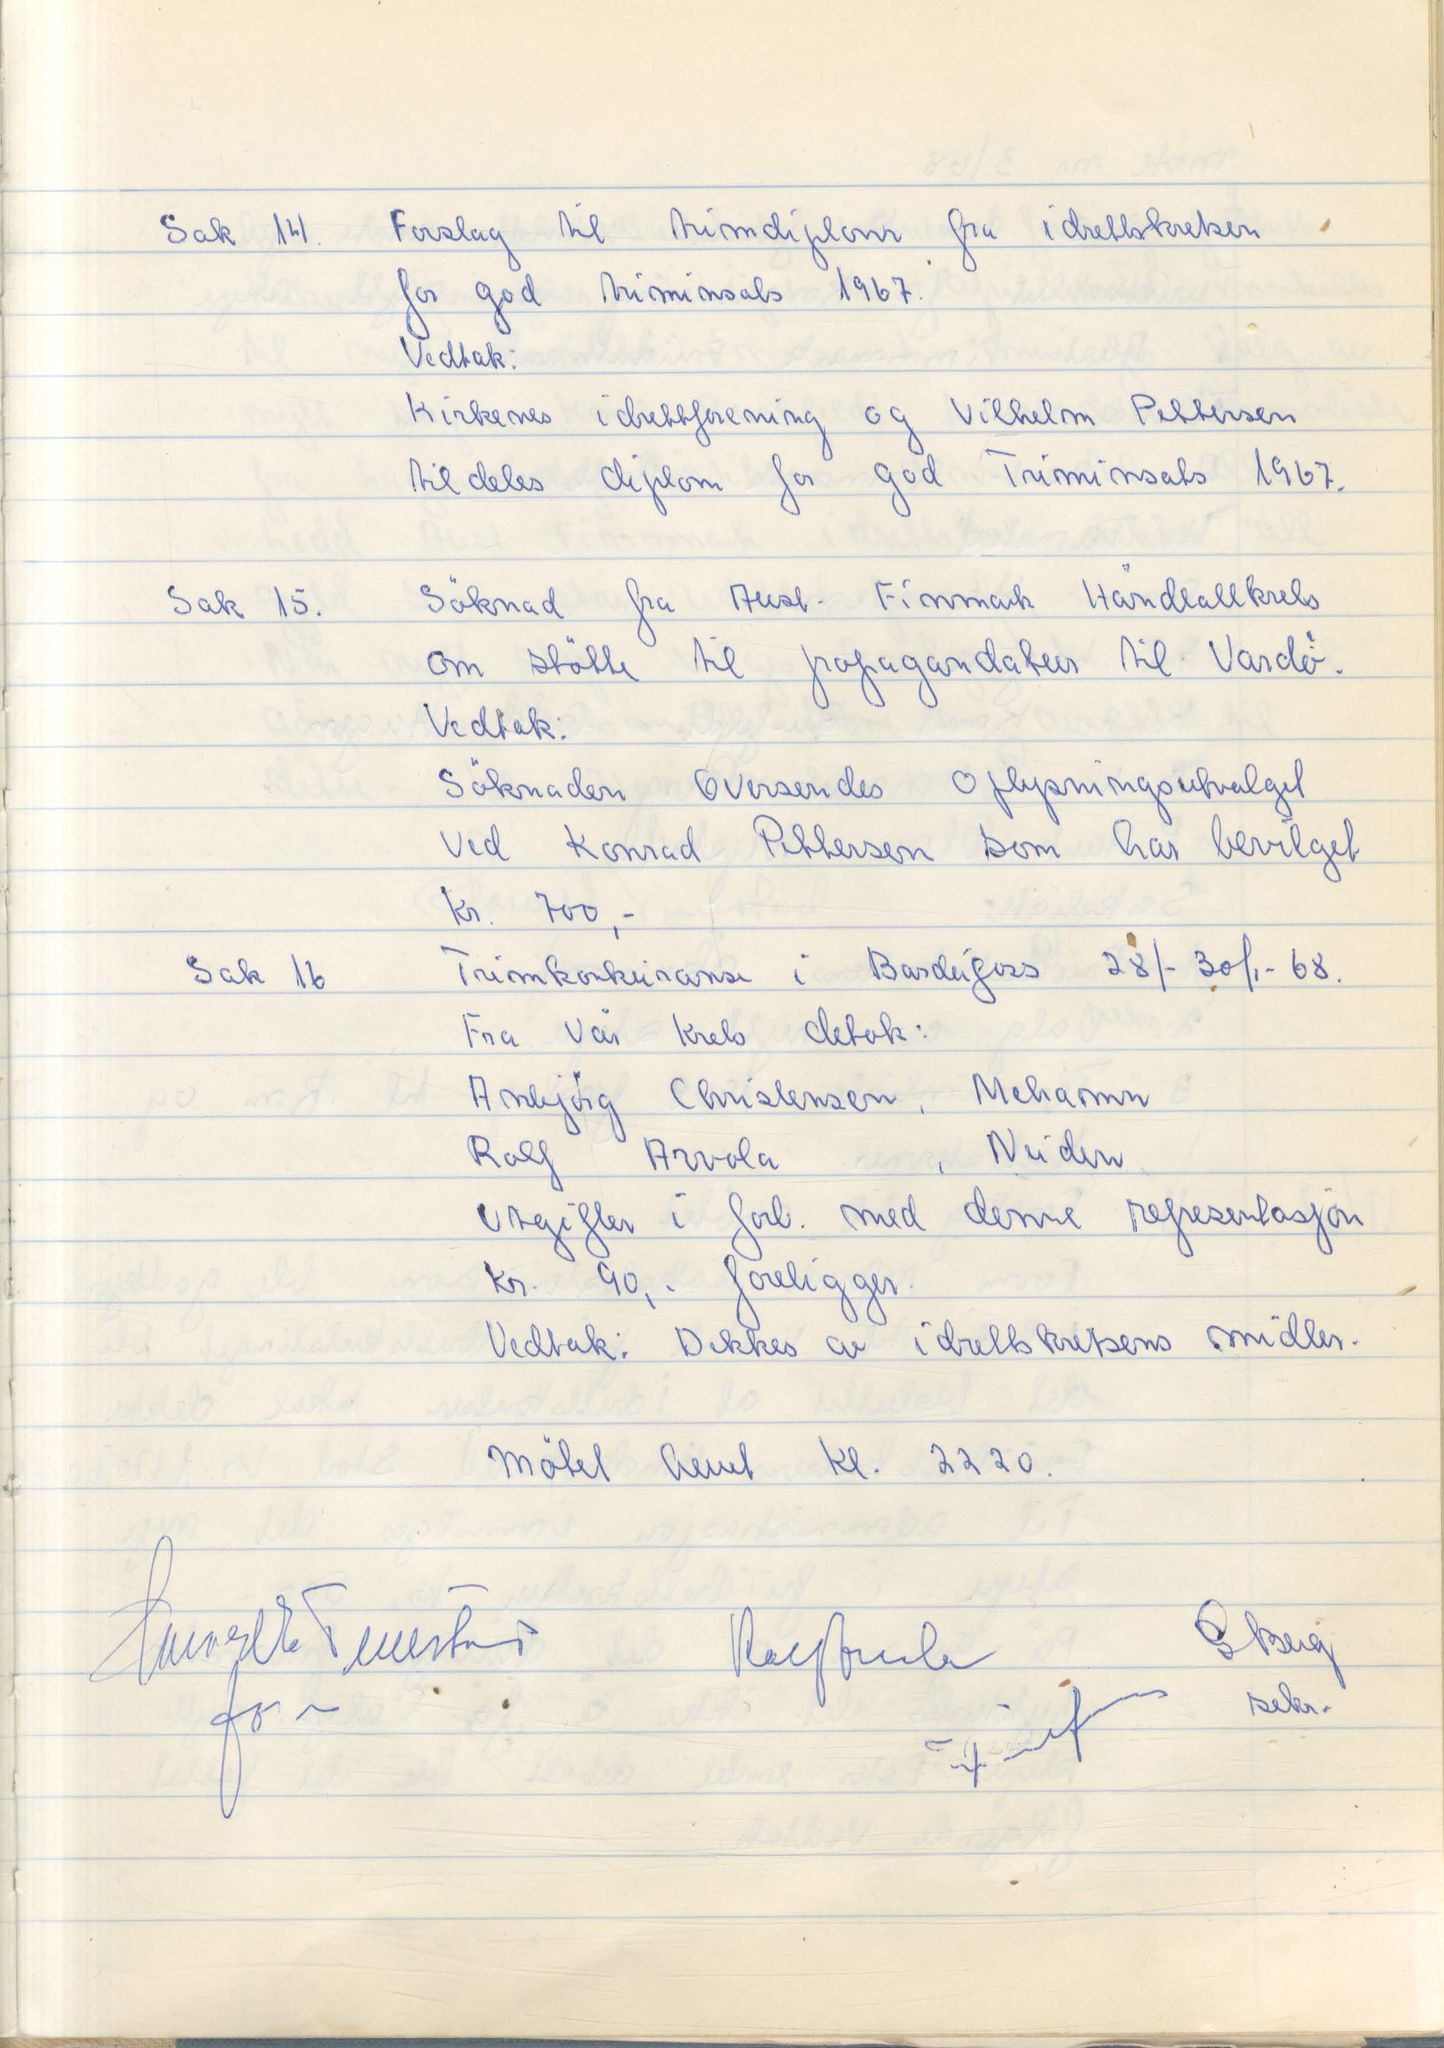 Sak 14. Forslag til trimdiplom fra idrettskretsen
for god triminsats 1967.
Vedtak:
Kirkenes idrettforening og Vilhelm Pettersen
tildeles diplom for god Triminsats 1967.
Sak 15. Söknad fra Aust-Finmark Håndballkrets
om stötte til propagandatur til Vardö.
Vedtak:
Söknaden oversendes oplysningsutvalget
ved Konrad Pettersen som har bevilget
kr. 700,-
Sak 16 Trimkonkuranse i Bardufoss 28/- 30/1-68.
Fra vår krets detok:
Annbjörg Christensen, Mehamn
Rolf Arvola, Neiden
Utgifter i forb. med denne representasjon
kr. 90,- foreligger.
Vedtak: Dekkes av idrettskretsens midler.
Mötet hevet kl. 2220.
Rolf Arvola
Berg
sekr.